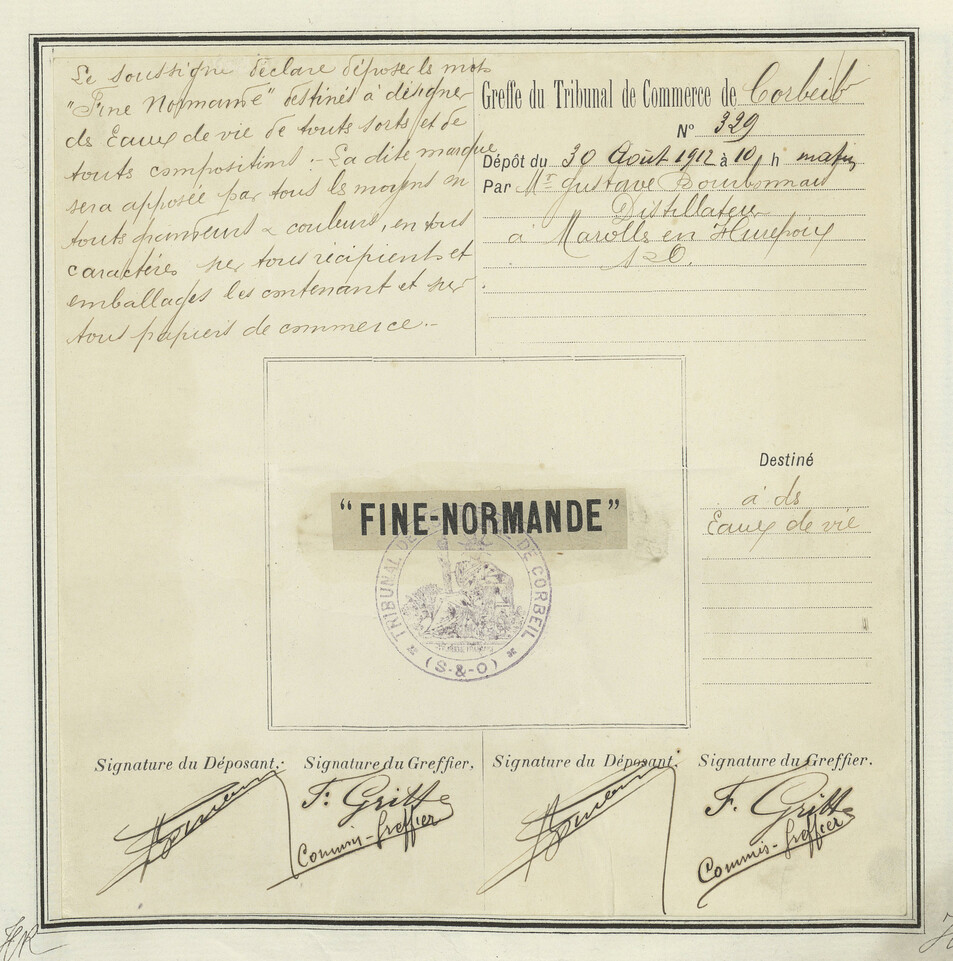 Le soussigné déclare déposer les mots
"Fine Normande" destinés à désigner
ds Eaux de vie de touts sorts et de
touts compositions. - La dite marque
sera apposée par tous les moyens en
touts grandeurs & couleurs, en tous
caractères sur tous récipients et
emballages les contenant et sur
tous papiers de commerce. -
Greffe du Tribunal de Commerce de Corbeil
N° 329
Dépôt du 30 Août 1912 à 10 h matin
Par Mr Gustave Bourbonnais
Distillateur
à Marolles en Hurepoix
S&O.
"FINE-NORMANDE"
TRIBUNAL DE COMMERCE DE CORBEIL
(S-&-O)
Destiné
à ds
Eaux de vie
Signature du Déposant. Signature du Greffier,
F. Gritte
Commis-Greffier
Signature du Déposant. Signature du Greffier.
F. Gritte
Commis-Greffier
HR